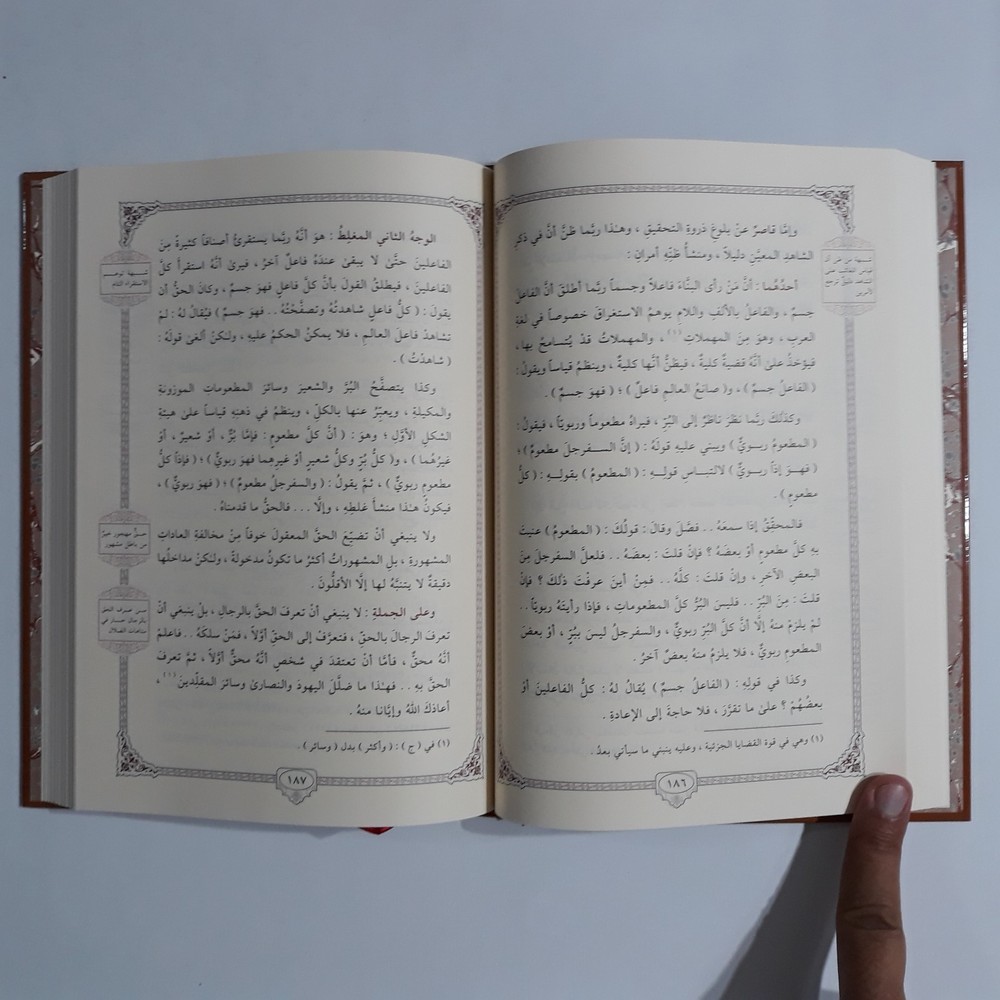 وإمَّا قاصرٌ عنْ بلوغِ ذروةِ التحقيقِ ، وهـٰذا ربَّما ظنَّ أنَّ في ذكرِ
الشاهدِ المعيَّنِ دليلاً ، ومنشأُ ظنِّهِ أمرانِ :
أحدُهُما : أنَّ مَنْ رأى البنَّاءَ فاعلاً وجسماً ربَّما أطلقَ أنَّ الفاعلَ
جسمٌ ، والفاعلُ بالألفِ واللامِ يوهمُ الاستغراقَ خصوصاً في لغةِ
العربِ ، وهوَ مِنَ المهملاتِ (١) ، والمهملاتُ قدْ يُتسامحُ بها ،
فيؤخذُ علىٰ أنَّهُ قضيةٌ كليةٌ ، فيظنُّ أنَّها كليةٌ ، وينظمُ قياساً ويقولُ :
( الفاعلُ جسمٌ ) ، و( صانعُ العالمِ فاعلٌ ) ؛ ( فهوَ جسمٌ ) .
وكذلكَ ربَّما نظرَ ناظرٌ إلى البُرِّ ، فيراهُ مطعوماً وربويّاً ، فيقولُ :
( المطعومُ ربـويٌّ ) ويبني عليهِ قولَهُ : ( إنَّ السـفرجلَ مطعومٌ ) ؛
( فهـوَ إذاً ربـويٌّ ) لالتبـاسِ قولِـهِ : ( المطعومُ ) بقولِـهِ : ( كلُّ
مطعومٍ ) .
فالمحقِّقُ إذا سمعَهُ . . فصَّلَ وقالَ : قولُكَ : ( المطعومُ ) عنيتَ
بهِ كلَّ مطعومٍ أوْ بعضَهُ ؟ فإنْ قلتَ : بعضَهُ . . فلعلَّ السفرجلَ مِنَ
البعضِ الآخرِ ، وإنْ قلتَ : كلَّهُ . . فمنْ أينَ عرفْتَ ذلكَ ؟ فإنْ
قلتَ : مِنَ البُرِّ . . فليسَ البُرُّ كلَّ المطعوماتِ ، فإذا رأيتَهُ ربويّاً . .
لمْ يلزمْ منهُ إلَّا أنَّ كلَّ البُرِّ ربويٌّ ، والسفرجلُ ليسَ ببُرٍّ ، أوْ بعضَ
المطعومِ ربويٌّ ، فلا يلزمُ منهُ بعضٌ آخرُ .
وكذا في قولِهِ : ( الفاعلُ جسمٌ ) يُقالُ لهُ : كلُّ الفاعلينَ أوْ
بعضُهُمْ ؟ علىٰ ما تقرَّرَ ، فلا حاجةَ إلى الإعادةِ .
(١) وهي في قوة القضايا الجزئية ، وعليه ينبني ما سيأتي بعدُ .
١٨٦
شبهة من ظن أن
الأمرين
الوجهُ الثاني المغلِطُ : هوَ أنَّهُ ربَّما يستقرئُ أصنافاً كثيرةً مِنَ
الفاعلينَ حتَّىٰ لا يبقىٰ عندَهُ فاعلٌ آخرُ ، فيرىٰ أنَّهُ استقرأَ كلَّ
الفاعلينَ ، فيطلقُ القولَ بأنَّ كلَّ فاعلٍ فهوَ جسمٌ ، وكانَ الحقُّ أنْ
يقولَ : ( كلُّ فاعلٍ شاهدتُهُ وتصفَّحْتُهُ . . فهوَ جسمٌ ) فيُقالُ لهُ : لمْ
تشاهدْ فاعلَ العالمِ ، فلا يمكنُ الحكمُ عليهِ ، ولـٰكنْ ألغىٰ قولَهُ :
( شاهدْتُ ) .
وكذا يتصفَّحُ البُرَّ والشعيرَ وسائرَ المطعوماتِ الموزونةِ
والمكيلةِ ، ويعبِّرُ عنها بالكلِّ ، وينظمُ في ذهنِهِ قياساً علىٰ هيئةِ
الشكلِ الأوَّلِ ؛ وهوَ : ( أنَّ كلَّ مطعومٍ : فإمَّا بُرٌّ ، أوْ شعيرٌ ، أوْ
غيرُهُما ) ، و( كلُّ بُرٍّ وكلُّ شعيرٍ أوْ غيرِهِما فهوَ ربويٌّ ) ؛ ( فإذاً كلُّ
مطعومٍ ربويٌّ ) ، ثمَّ يقولُ : ( والسفرجلُ مطعومٌ ) ؛ ( فهوَ ربويٌّ ) ،
فيكونُ هـٰذا منشأَ غلطِهِ ، وإلَّا . . . فالحقُّ ما قدمناهُ .
ولا ينبغي أنْ تضيِّعَ الحقَّ المعقولَ خوفاً مِنْ مخالفةِ العاداتِ
المشهورةِ ، بلِ المشهوراتُ أكثرُ ما تكونُ مدخولةً ، ولـٰكنْ مداخلُها
دقيقةٌ لا يتنبَّهُ لها إلَّا الأقلُّونَ .
وعلى الجملةِ : لا ينبغي أنْ تعرفَ الحقَّ بالرجالِ ، بلْ ينبغي أنْ
تعرفَ الرجالَ بالحقِّ ، فتتعرَّفُ إلى الحقِّ أوَّلاً ، فمَنْ سلكَهُ . . فاعلمْ
أنَّهُ محقٌّ ، فأمَّا أنْ تعتقدَ في شخصٍ أنَّهُ محقٌّ أوَّلاً ، ثمَّ تعرفَ
الحقَّ بهِ . . فهـٰذا ما ضلَّلَ اليهودَ والنصارىٰ وسائرَ المقلِّدينَ (١) ،
أعاذَكَ اللهُ وإيَّانا منهُ .
(١) في ( ج ) : ( وأكثر ) بدل ( وسائر ) .
١٨٧
شبهة توهم
الاستقراء التام
حقٌّ مهجور خيرٌ
من باطل مشهور
من عرف الحق
بالرجال حار في
متاهات الضلال